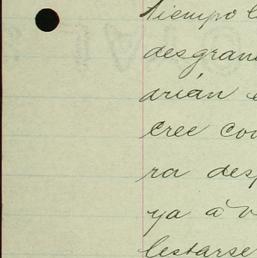 tiempo l
desgran
drián e
cree con
ra desp
ya á v
lestarse